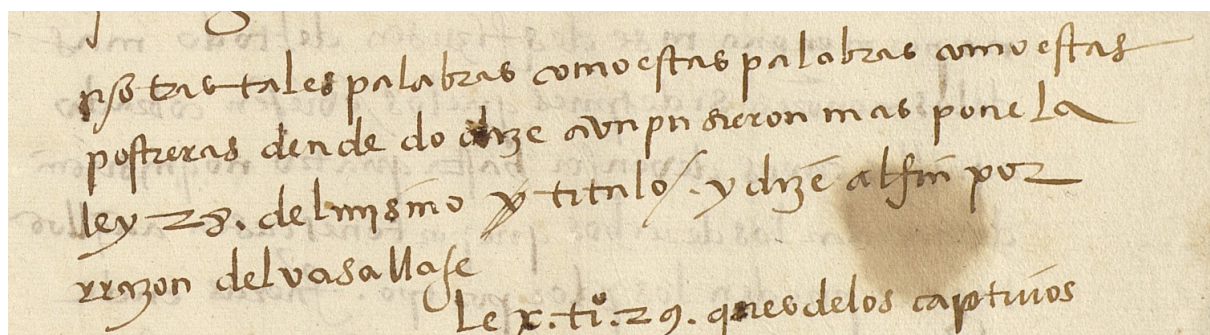 otras tales palabras como estas palabras como estas
postreras dende do dize avn pusieron mas pone la
ley 28. del mismo titulo. y dizē al fin por
rrazon del vasallaje
Le x. ti.º 29. ques de los captiuos